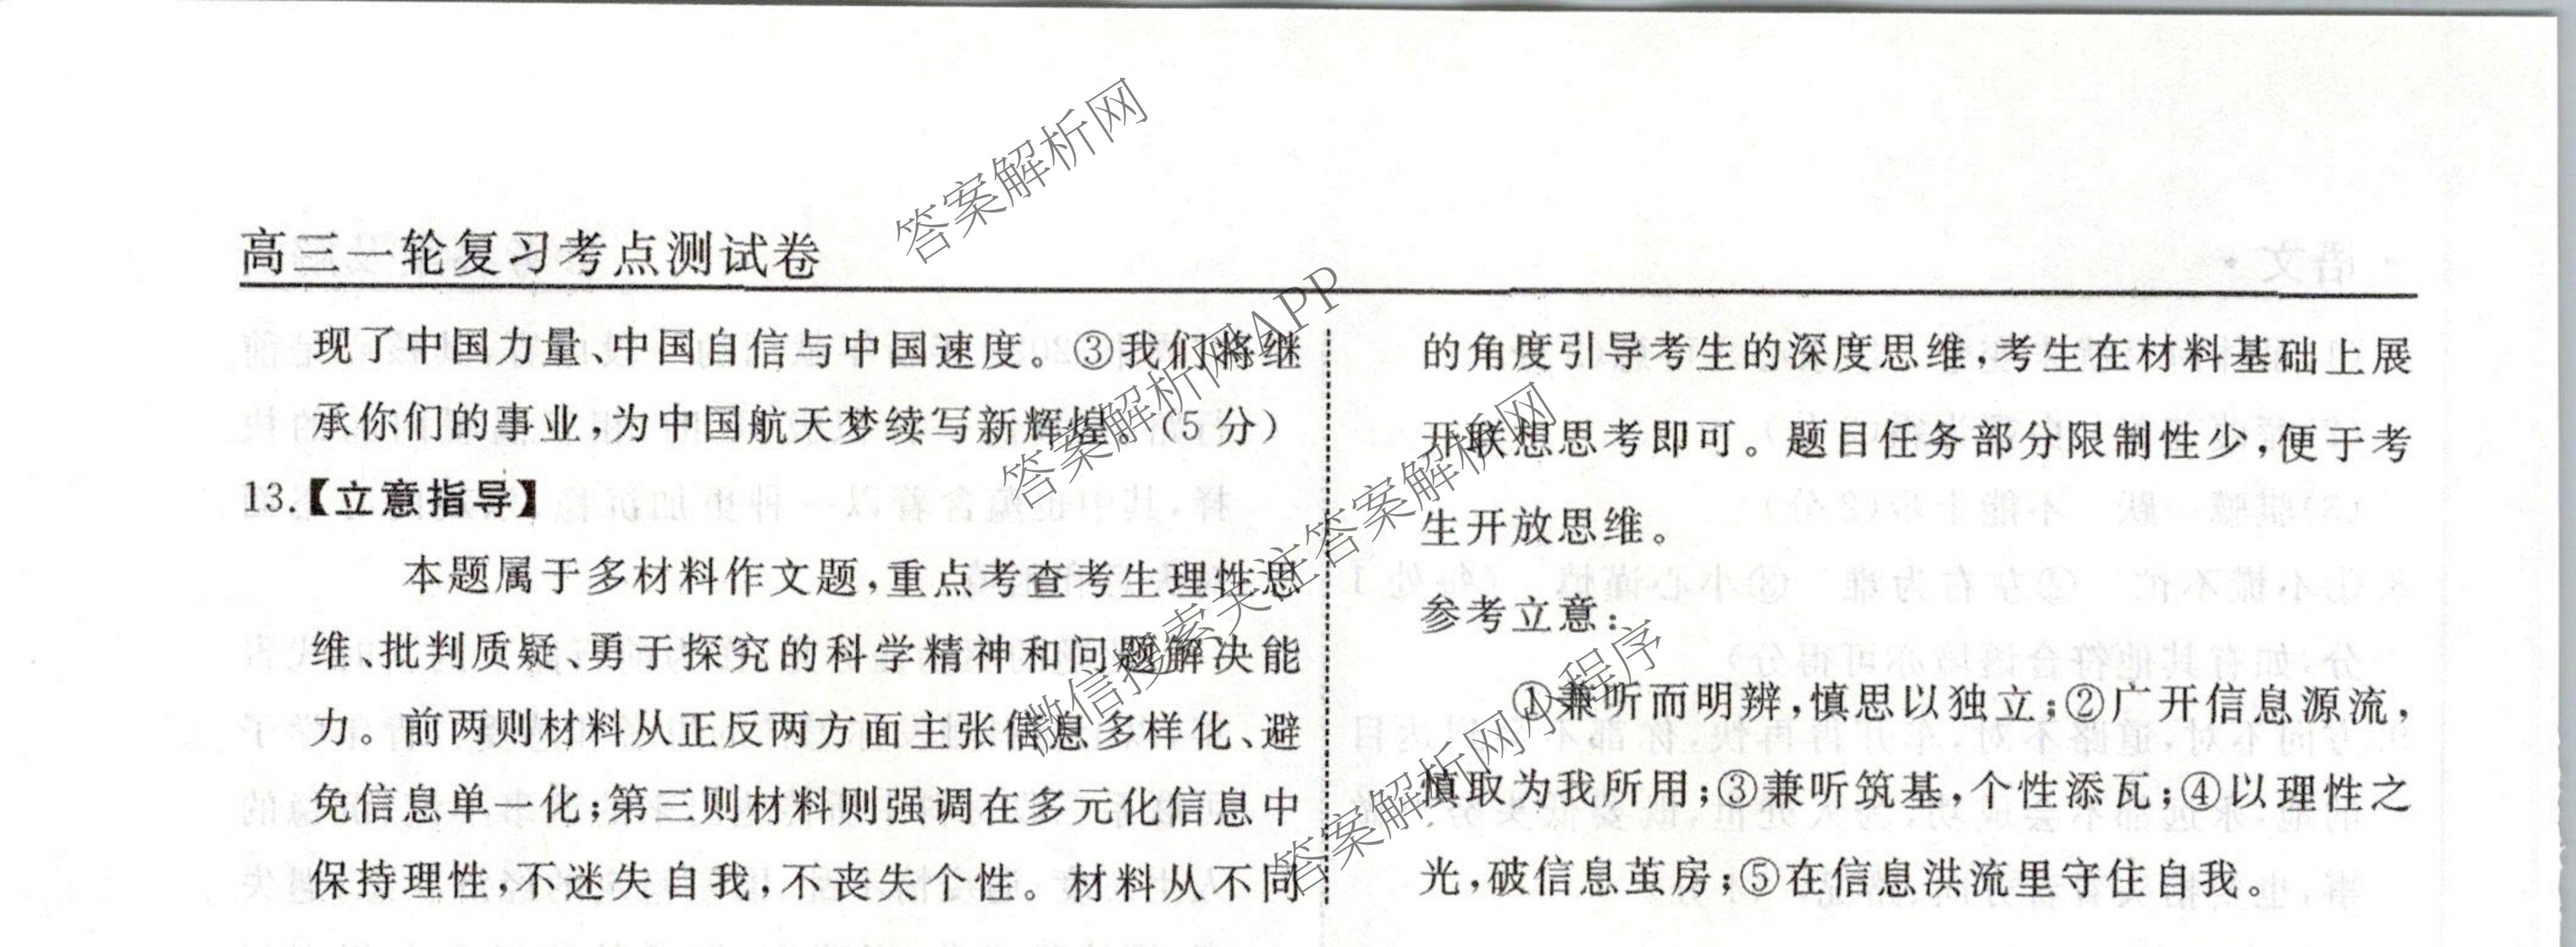 高三一轮复习考点测试卷
现了中国力量、中国自信与中国速度。③我们将继
承你们的事业,为中国航天梦续写新辉煌。(5分)
13.【立意指导】
本题属于多材料作文题,重点考查考生理性思
维、批判质疑、勇于探究的科学精神和问题解决能
力。前两则材料从正反两方面主张信息多样化、避
免信息单一化;第三则材料则强调在多元化信息中
保持理性,不迷失自我,不丧失个性。材料从不同
的角度引导考生的深度思维,考生在材料基础上展
开联想思考即可。题目任务部分限制性少,便于考
生开放思维。
参考立意:
①兼听而明辨,慎思以独立;②广开信息源流,
慎取为我所用;③兼听筑基,个性添瓦;④以理性之
光,破信息茧房;⑤在信息洪流里守住自我。
答案解析网
答案解析网APP
微信搜索关注答案解析网
答案解析网小程序